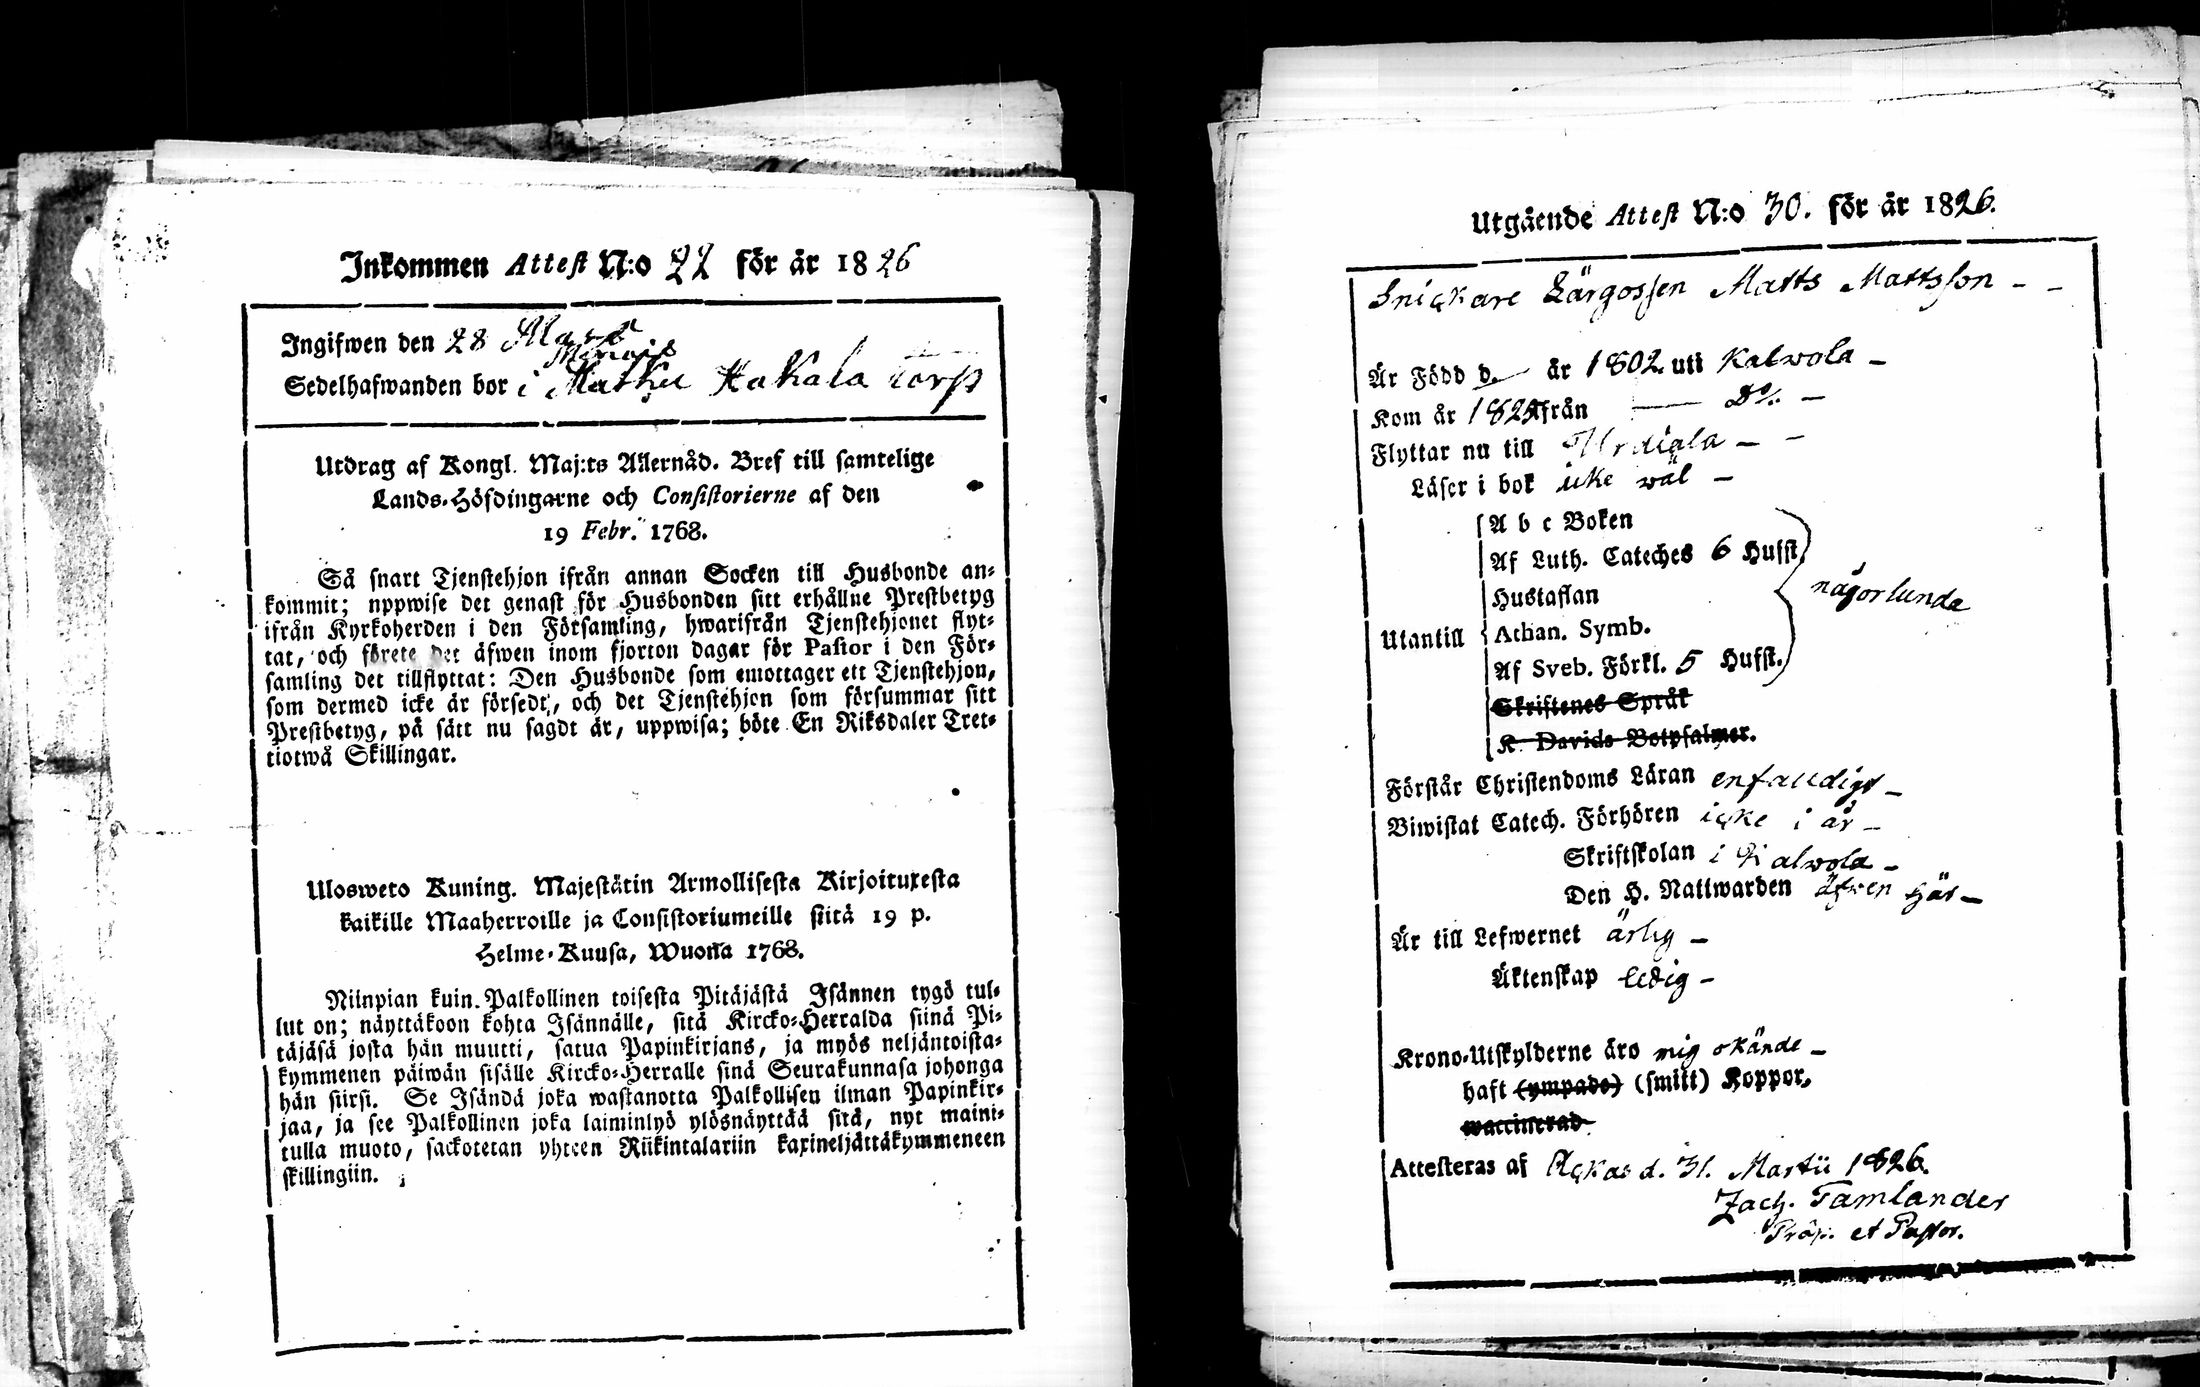 Inkommen Attest N:o 22 för år 1826
Ingifwen den 28 Mars
Sedelhafwanden bor i Kakala torp
Utdrag af Kongl. Maj:ts Allernåd. Bref till samtelige
Lands-Höfdingarne och Consistorierne af den
19 Febr. 1768.
Så snart Tjenstehjon ifrån annan Socken till Husbonde an-
kommit; uppwise det genast för Husbonden sitt erhållne Prestbetyg
ifrån Kyrkoherden i den Församling, hwarifrån Tjenstehjonet flyt-
tat, och förete det äfwen inom fjorton dagar för Pastor i den För-
samling det tillflyttat: Den Husbonde som emottager ett Tjenstehjon,
som dermed icke är försedt, och det Tjenstehjon som försummar sitt
Prestbetyg, på sätt nu sagdt är, uppwisa; böte En Riksdaler Tret-
tiotwå Skillingar.
Ulosweto Kuning. Majestätin Armollisesta Kirjoituxesta
kaikille Maaherroille ja Consistoriumeille siitä 19 p.
Helme-Kuusa, Wuonna 1768.
Niinpian kuin Palkollinen toisesta Pitäjästä Isännen tygö tul-
lut on; näyttäkoon kohta Isännälle, sitä Kircko-Herralda siinä Pi-
täjäsä josta hän muutti, satua Papinkirjans, ja myös neljäntoista-
kymmenen päiwän sisälle Kircko-Herralle sinä Seurakunnasa johonga
hän siirsi. Se Isändä joka wastanotta Palkollisen ilman Papinkir-
jaa, ja see Palkollinen joka laiminlyö ylösnäyttää sitä, nyt maini-
tulla muoto, sackotetan yhteen Riikintalariin kaxineljättäkymmeneen
skillingiin.
Utgående Attest N:o 30. för år 1826.
Snickare Lärgossen Matts Mattsson - -
Är Född d. år 1802. uti Kalwola -
Kom år ifrån — Do. -
Flyttar nu till Urdiala - -
Läser i bok icke wäl -
A b c Boken
Af Luth. Cateches 6 Hufst.
Hustaflan
någorlunda
Utantill
Athan. Symb.
Af Sveb. Förkl. 5 Hufst.
Skriftenes Språk
K. Davids Botpsalmer.
Förstår Christendoms Läran enfaldigt -
Biwistat Catech. Förhören icke i år -
Skriftskolan i Kalwola -
Den H. Nattwarden äfwen här -
Är till Lefwernet ärlig -
Äktenskap ledig -
Krono-Utskylderne äro mig okände -
haft (ympade) (smitt) Koppor,
waccinerad
Attesteras af Ackas d. 31. Martii 1826.
Zach. Tamlander
Präp. et Pastor.